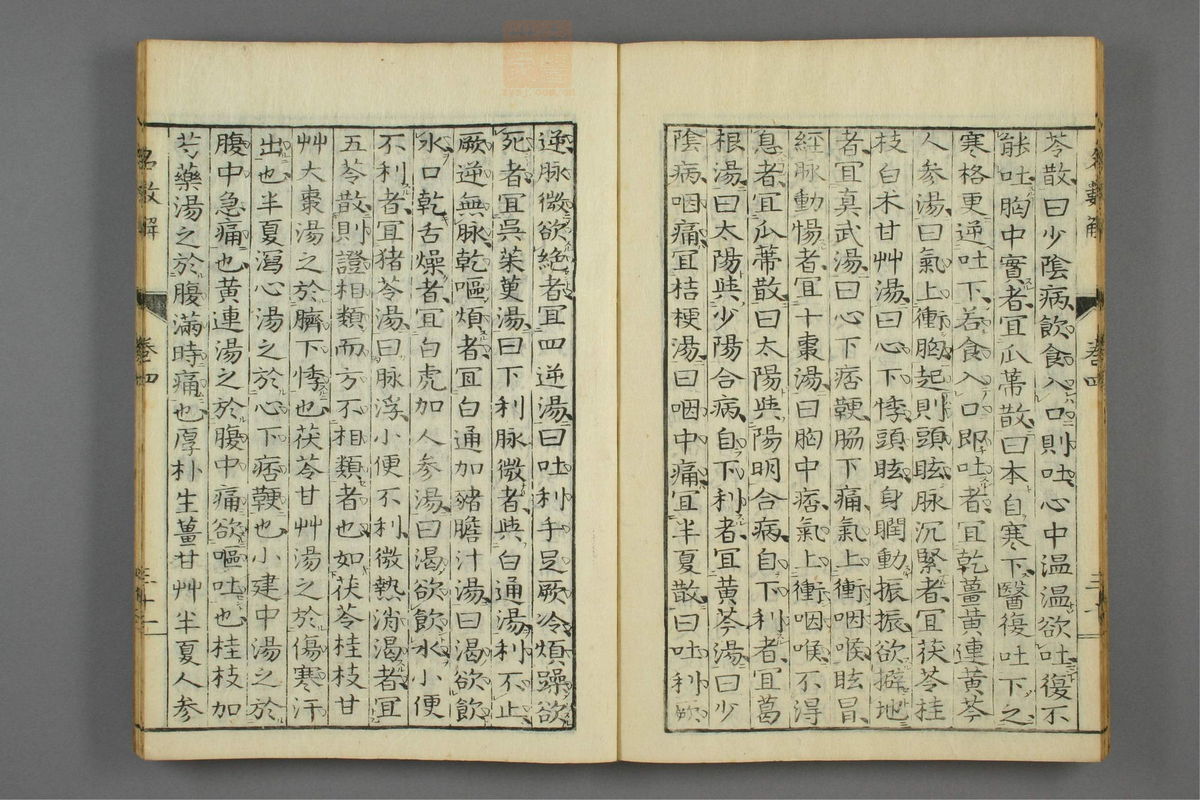 苓散曰少陰病飲食入口則吐心中温温欲吐復不
能吐胸中實者宜瓜蒂散曰本自寒下醫復吐下之
寒格更逆吐下若食入口即吐者宜乾薑黄連黄芩
人参湯曰氣上衝胸起則頭眩脉沉緊者宜茯苓桂
枝白朮甘艸湯曰心下悸頭眩身瞤動振振欲擗地
者宜真武湯曰心下痞鞕脇下痛氣上衝咽喉眩冒
經脉動惕者宜十棗湯曰胸中痞氣上衝咽喉不得
息者宜瓜蒂散曰太陽與陽明合病自下利者宜葛
根湯曰太陽與少陽合病自下利者宜黄芩湯曰少
陰病咽痛宜桔梗湯曰咽中痛宜半夏散曰吐利
逆脉微欲絶者宜四逆湯曰吐利手足厥冷煩躁欲
死者宜呉茱萸湯曰下利脉微者與白通湯利不止
厥逆無脉乾嘔煩者宜白通加豬膽汁湯曰渴欲飲
水口乾舌燥者宜白虎加人参湯曰渴欲飲水小便
不利者宜猪苓湯曰脉浮小便不利微熱消渴者宜
五苓散則證相類而方不相類者也如茯苓桂枝甘
艸大棗湯之於臍下悸也茯苓甘艸湯之於傷寒汗
出也半夏瀉心湯之於心下痞鞕也小建中湯之於
腹中急痛也黄連湯之於腹中痛欲嘔吐也桂枝加
芍藥湯之於腹滿時痛也厚朴生薑甘艸半夏人参
名數解
卷四